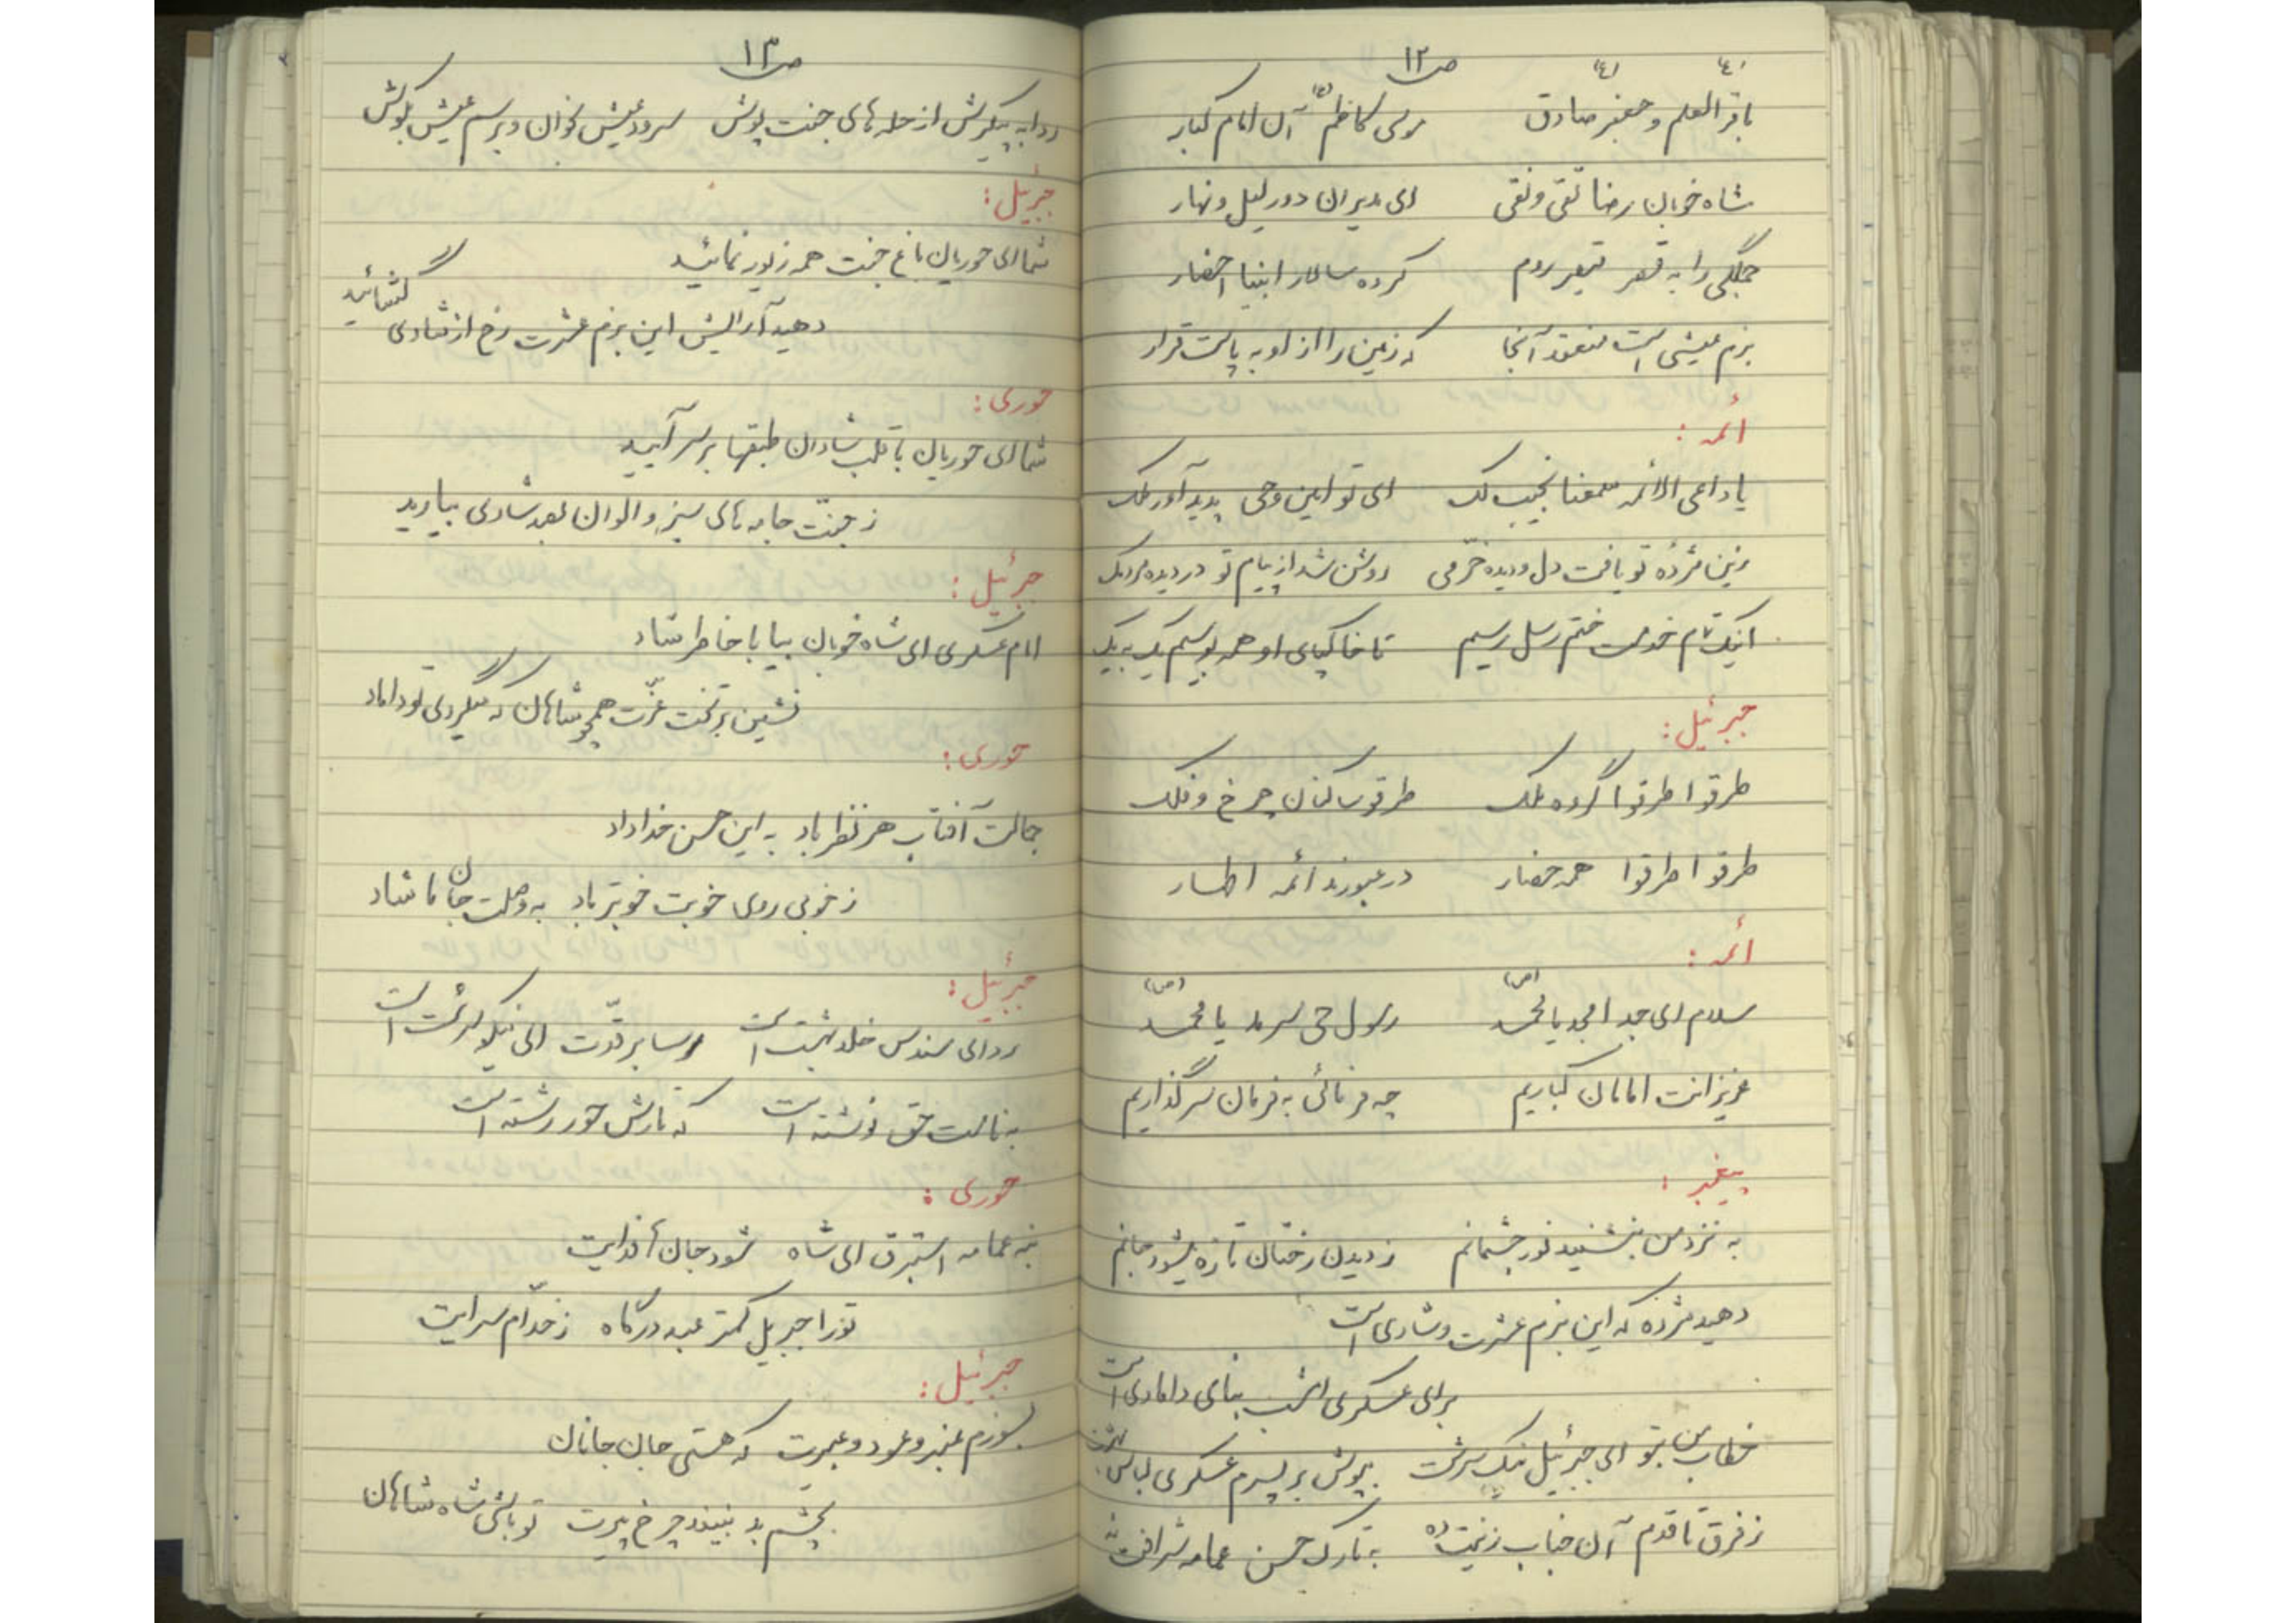 ص ۱۲
باقر العلم و جعفر صادق موسی کاظم آن امام کبار
شاه خوبان رضا تقی و نقی ای مدیران دور لیل و نهار
جملگی را به قصر قیصر روم کرده سالار انبیا احضار
بزم عیشی است منعقد آنجا که زمین را از او به پاست قرار
ائمه :
یا داعی الائمه سمعنا نجیب لک ای تو امین وحی پدید آور ملک
زین مژده تو یافت دل و دیده خرّمی روشن شد از پیام تو در دیده مردمک
اینک تمام خدمت ختم رسل رسیم تا خاکپای او همه بوسیم یک به یک
جبرئیل :
طرقوا طرقوا گروه ملک طرقوا ساکنان چرخ و فلک
طرقوا طرقوا همه حضار در عبورند ائمه اطهار
ائمه :
سلام ای جد امجد یا محمّد (ص) رسول حی سرمد یا محمّد (ص)
عزیزانت امامان کباریم چه فرمائی به فرمان سرگذاریم
پیغمبر :
به نزد من بنشینید نور چشمانم ز دیدن رختان تازه میشود جانم
دهید مژده که این بزم عشرت و شادی است
برای عسکری امشب بنای دامادی است
خطاب من بتو ای جبرئیل نیک سرشت بپوش بر پسرم عسکری لباس بهشت
ز فرق تا قدم آن جناب زینت ده به تارک حسن عمامه شرافت نه
ص ۱۳
ردا به پیکرش از حله های جنت پوش سرود عیش بخوان و برسم عیش بکوش
جبرئیل :
شما ای حوریان باغ جنت همه زیور نمائید
دهید آرایش این بزم عشرت رخ از شادی گشائید
حوری :
شما ای حوریان با قلب شادان طبقها بر سر آیید
ز جنّت جامه های سبز و الوان بصد شادی بیارید
جبرئیل :
امام عسکری ای شاه خوبان بیا با خاطر شاد
نشین بر تخت عزّت همچو شاهان که میگردی تو داماد
حوری :
جمالت آفتاب هر نظر باد به این حسن خداداد
ز خوبی روی خوبت خوبتر باد به وصلت جان ما شاد
جبرئیل :
ردای سندس خلد بهشت است رسا بر قدّت ای نیکو سرشت است
به نامت حق نوشته است که تارش حور رشته است
حوری :
بنه عمامه استبرق ای شاه شود جانها فدایت
تو را جبریل کمتر عبد درگاه ز خدّام سرایت
جبرئیل :
بسوزم عنبر و عود و عبیرت که هستی جان جانان
بچشم بد نبیند چرخ پیرت تو باشی شاه شاهان